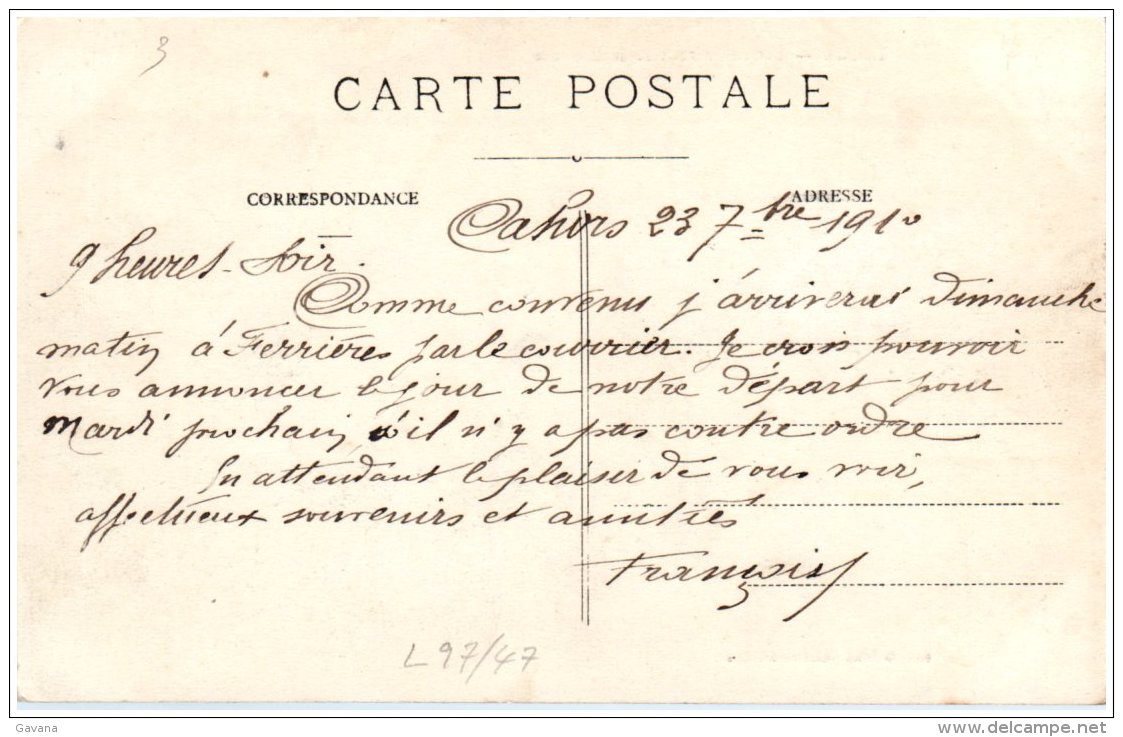 3
CARTE POSTALE
CORRESPONDANCE
ADRESSE
Cahors 23 7bre 1910
9 heures - soir.
Comme convenu j'arriverai Dimanche
matin à Ferrières par le courrier. Je crois pouvoir
vous annoncer le jour de notre départ pour
Mardi prochain, s'il n'y a pas contre ordre
En attendant le plaisir de vous voir,
affectueux souvenirs et amitiés
François
L97/47
Gavana
www.delcampe.net